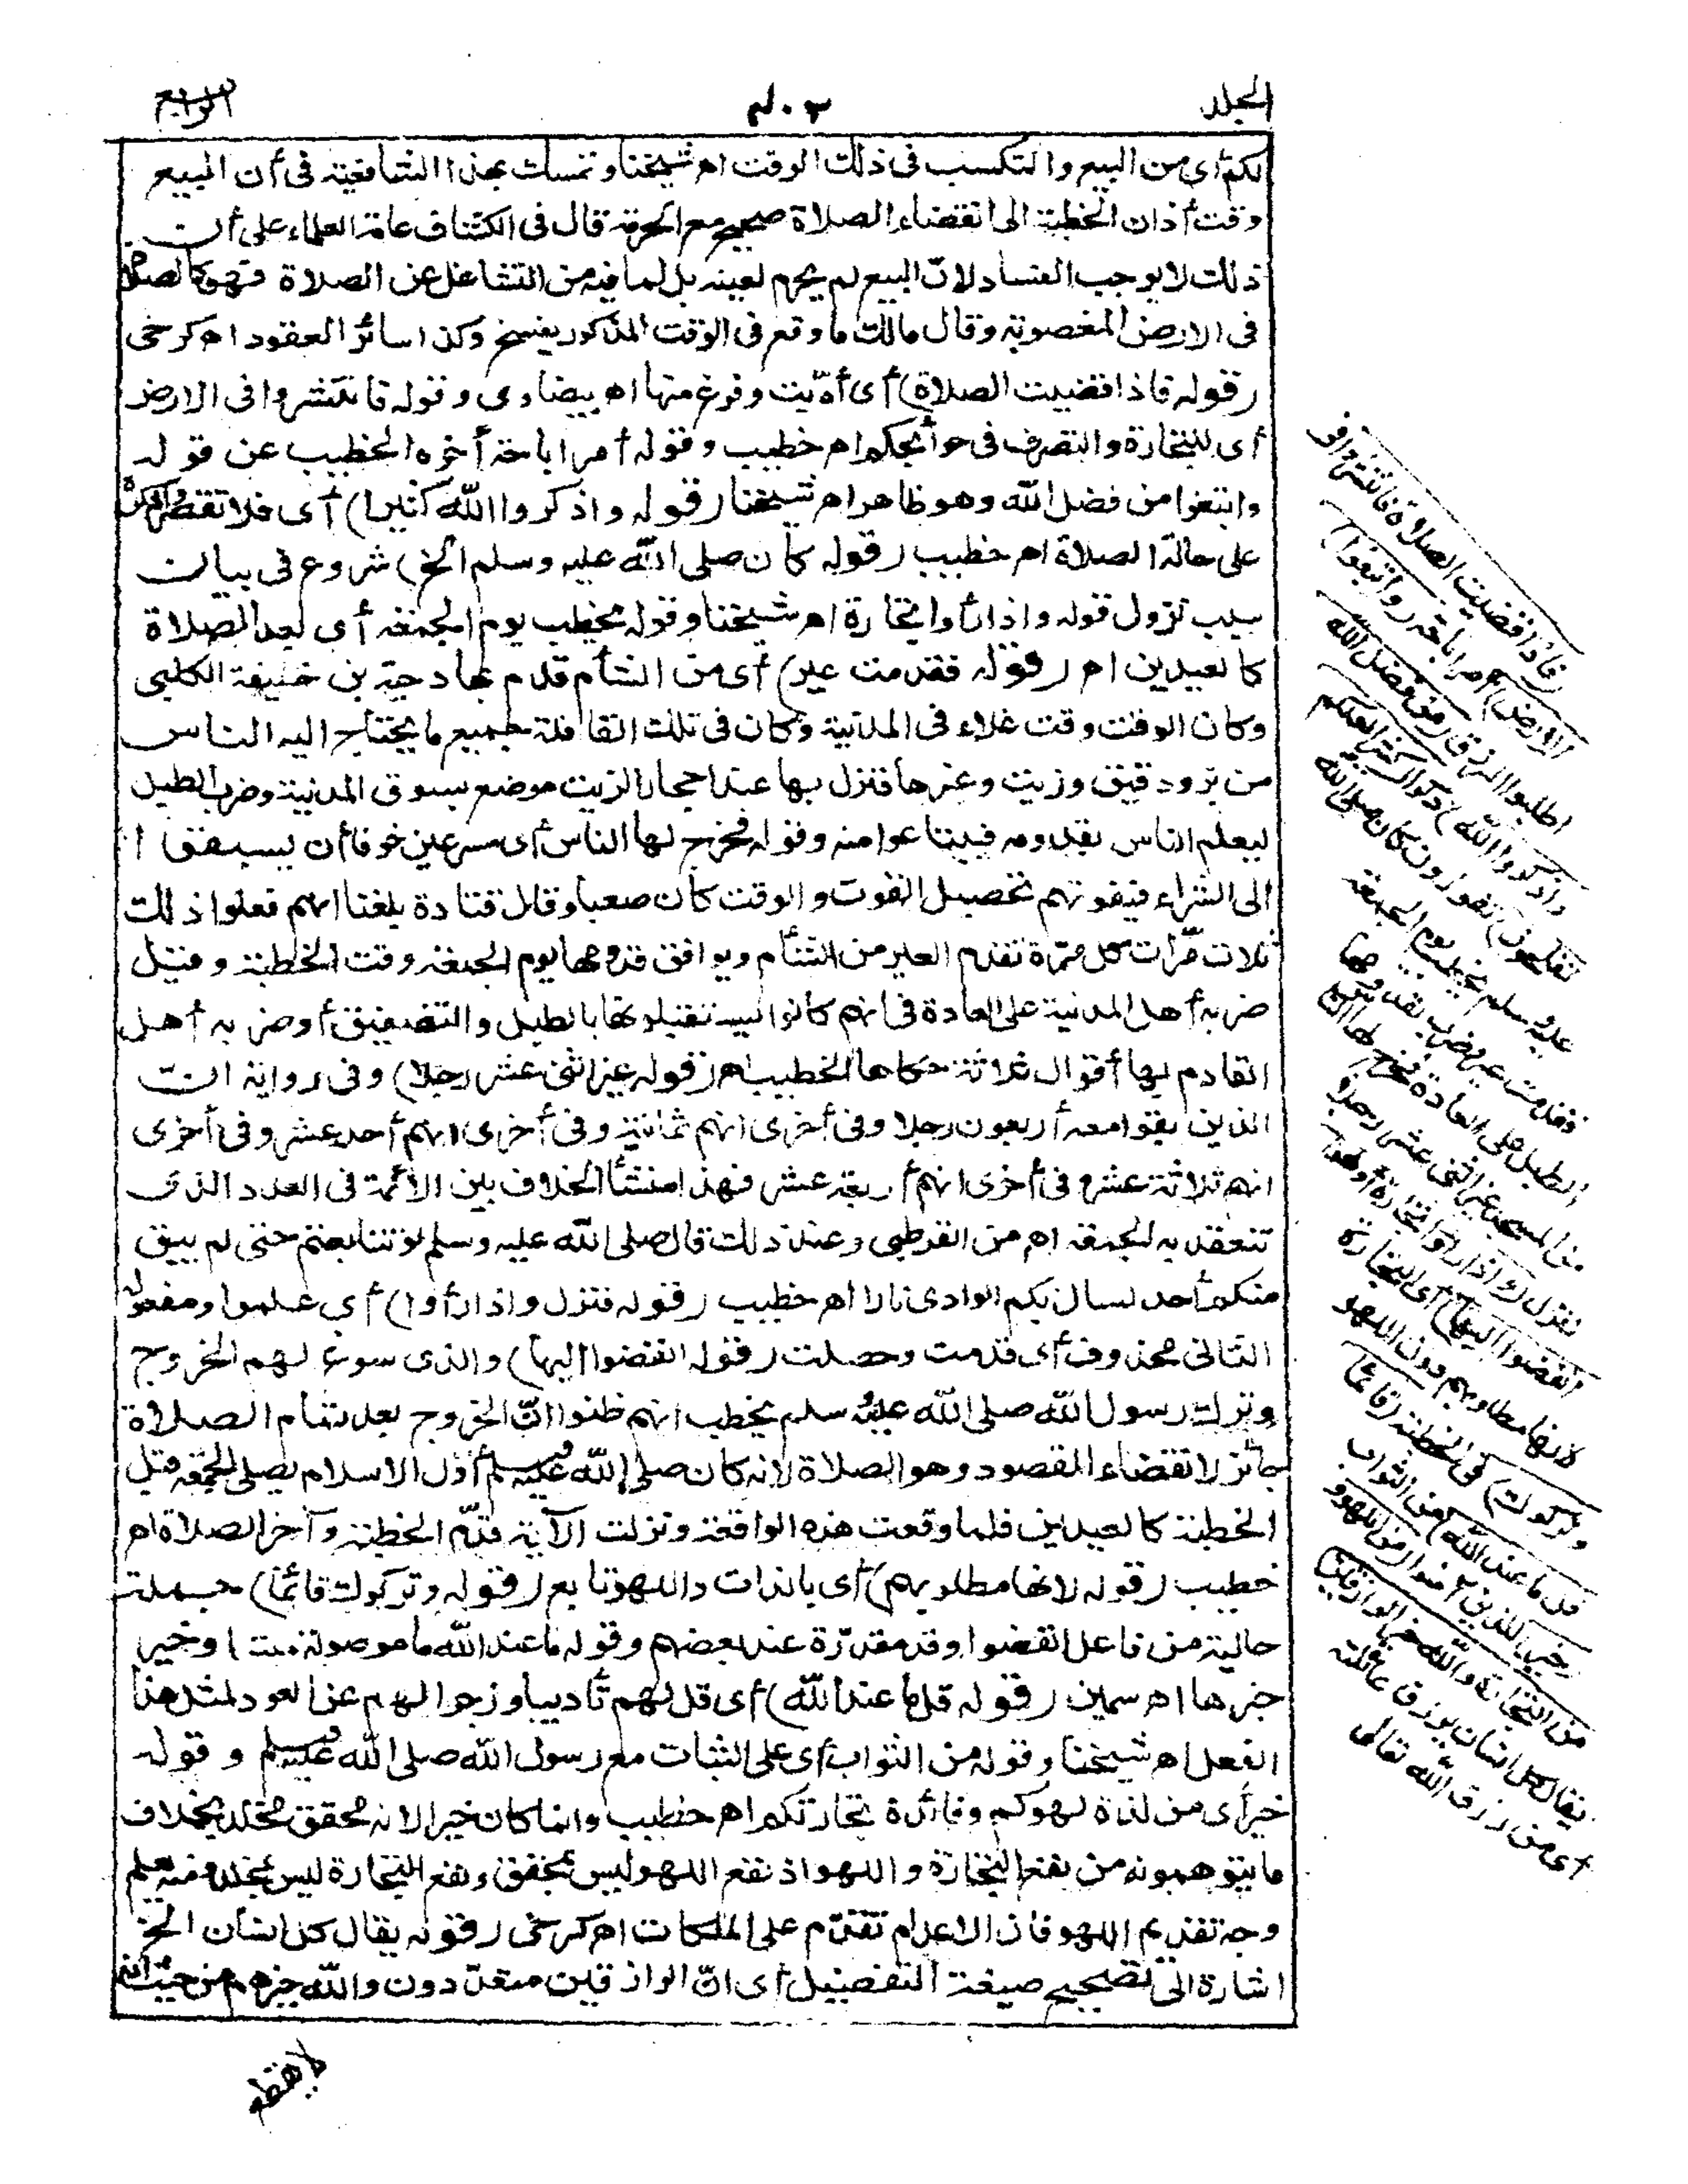 المجلد
٣٠٤
الرابع
لكم أى من البيع والتكسب فى ذلك الوقت اه شيخنا وتمسك بهذا الشافعية فى أن البيع
وقت أذان الخطبة الى انقضاء الصلاة صحيح مع الحرمة قال فى الكشاف عامة العلماء على أن
ذلك لا يوجب الفساد لانّ البيع لم يحرم لعينه بل لما فيه من التشاغل عن الصلاة فهو كالصلاة
فى الارض المغصوبة وقال مالك ما وقع فى الوقت المذكور يفسخ وكذا سائر العقود اه كرخى
(قوله فاذا قضيت الصلاة) أى أدّيت وفرغ منها اه بيضاوى وقوله فانتشروا فى الارض
أى للتجارة والتصرف فى حوائجكم اه خطيب وقوله أمر اباحة أخره الخطيب عن قوله
وابتغوا من فضل الله وهو ظاهر اه شيخنا (قوله واذكروا الله كثيرا) أى فلا تقصروا ذكره
على حالة الصلاة اه خطيب (قوله كان صلى الله عليه وسلم الخ) شروع فى بيان
سبب نزول قوله واذا رأوا تجارة اه شيخنا وقوله يخطب يوم الجمعة أى بعد الصلاة
كالعيدين اه (قوله فقدمت عير) أى من الشأم قدم بها دحية بن خليفة الكلبى
وكان الوقت وقت غلاء فى المدينة وكان فى تلك القافلة جميع ما يحتاج اليه الناس
من بر ودقيق وزيت وغيرها فنزل بها عند احجار الزيت موضع بسوق المدينة وضرب الطبل
ليعلم الناس بقدومه فيبتاعوا منه وقوله فخرج لها الناس أى مسرعين خوفا أن يسبقوا
الى الشراء فيفوتهم تحصيل القوت والوقت كان صعبا وقال قتادة بلغنا انهم فعلوا ذلك
ثلاث مرّات كل مرّة تقدم العير من الشأم ويوافق قدومها يوم الجمعة وقت الخطبة وقيل
ضربه أهل المدينة على العادة فى انهم كانوا يستقبلونها بالطبل والتصفيق أو ضربه أهل
القادم بها أقوال ثلاثة حكاها الخطيب اه (قوله غير اثنى عشر رجلا) وفى رواية ان
الذين بقوا معه أربعون رجلا وفى أخرى انهم ثمانية وفى أخرى انهم أحد عشر وفى أخرى
انهم ثلاثة عشر وفى أخرى انهم أربعة عشر فهذا منشأ الخلاف بين الأئمة فى العدد الذى
تنعقد به الجمعة اه من القرطبى وعند ذلك قال صلى الله عليه وسلم لو تتابعتم حتى لم يبق
منكم أحد لسال بكم الوادى نارا اه خطيب (قوله فنزل واذا رأوا) أى علموا ومفعوله
الثانى محذوف أى قدمت وحصلت (قوله انفضوا اليها) والذى سوغ لهم الخروج
وترك رسول الله صلى الله عليه وسلم يخطب انهم ظنوا انّ الخروج بعد تمام الصلاة
جائز لانقضاء المقصود وهو الصلاة لانه كان صلى الله عليه وسلم أوّل الاسلام يصلى الجمعة قبل
الخطبة كالعيدين فلما وقعت هذه الواقعة ونزلت الآية قدّم الخطبة وآخر الصلاة اه
خطيب (قوله لانها مطلوبهم) أى بالذات واللهو تابع (قوله وتركوك قائما) جملة
حالية من فاعل انفضوا وقد مقدّرة عند بعضهم وقوله ما عند الله ما موصولة مبتدأ وخير
خبرها اه سمين (قوله قل ما عند الله) أى قل لهم تأديبا وزجرا لهم عن العود لمثل هذا
الفعل اه شيخنا وقوله من الثواب أى على الثبات مع رسول الله صلى الله عليه وسلم وقوله
خير أى من لذة لهوكم وفائدة تجارتكم اه خطيب وانما كان خيرا لانه محقق مخلد بخلاف
ما يتوهمونه من نفع التجارة واللهو اذ نفع اللهو ليس بمحقق ونفع التجارة ليس بمخلد ومنه يعلم
وجه تقديم اللهو فان الاعدام تقدّم على الملكات اه كرخى (قوله يقال كل انسان الخ
اشارة الى تصحيح صيغة التفضيل أى انّ الرازقين متعدّدون والله خيرهم من حيث انه
(فاذا قضيت الصلاة فانتشروا فى
الارض) أمر اباحة (وابتغوا)
اطلبوا الرزق (من فضل الله
واذكروا الله) ذكرا (كثيرا لعلكم
تفلحون) تفوزون كان صلى الله
عليه وسلم يخطب يوم الجمعة
فقدمت عير وضرب لقدومها
الطبل على العادة فخرج لها الناس
من المسجد غير اثنى عشر رجلا
فنزل (واذا رأوا تجارة أو لهوا
انفضوا اليها) أى التجارة
لانها مطلوبهم دون اللهو
(وتركوك) فى الخطبة (قائما
قل ما عند الله) من الثواب
(خير) للذين آمنوا (من اللهو و
من التجارة والله خير الرازقين)
يقال كل انسان يرزق عائلته
أى من رزق الله تعالى